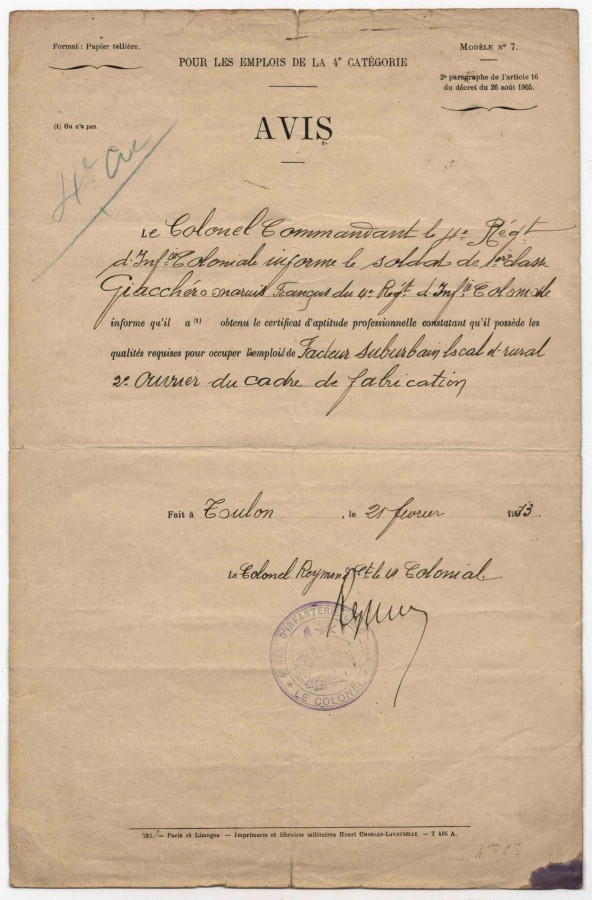 Format : Papier tellière.
POUR LES EMPLOIS DE LA 4e CATÉGORIE
MODÈLE No 7.
2e paragraphe de l'article 16
du décret du 26 août 1905.
(1) Ou n'a pas.
AVIS
4e
Le Colonel Commandant le 4e Régt
d'Infie Coloniale informe le soldat de 1ere classe
Giacchéro marius Français du 4e Régt d'Infie Coloniale
informe qu'il a (1) obtenu le certificat d'aptitude professionnelle constatant qu'il possède les
qualités requises pour occuper l'emploi de Facteur suburbain local et rural
2e Ouvrier du cadre de fabrication
Fait à Toulon, le 21 février 1913.
Le Colonel Reymond Ct le 4e Colonial
4e RÉGt D'INFANTERIE COLONIALE
LE COLONEL
Paris et Limoges — Imprimerie et librairie militaires Henri CHARLES-LAVAUZELLE. — T 466 A.